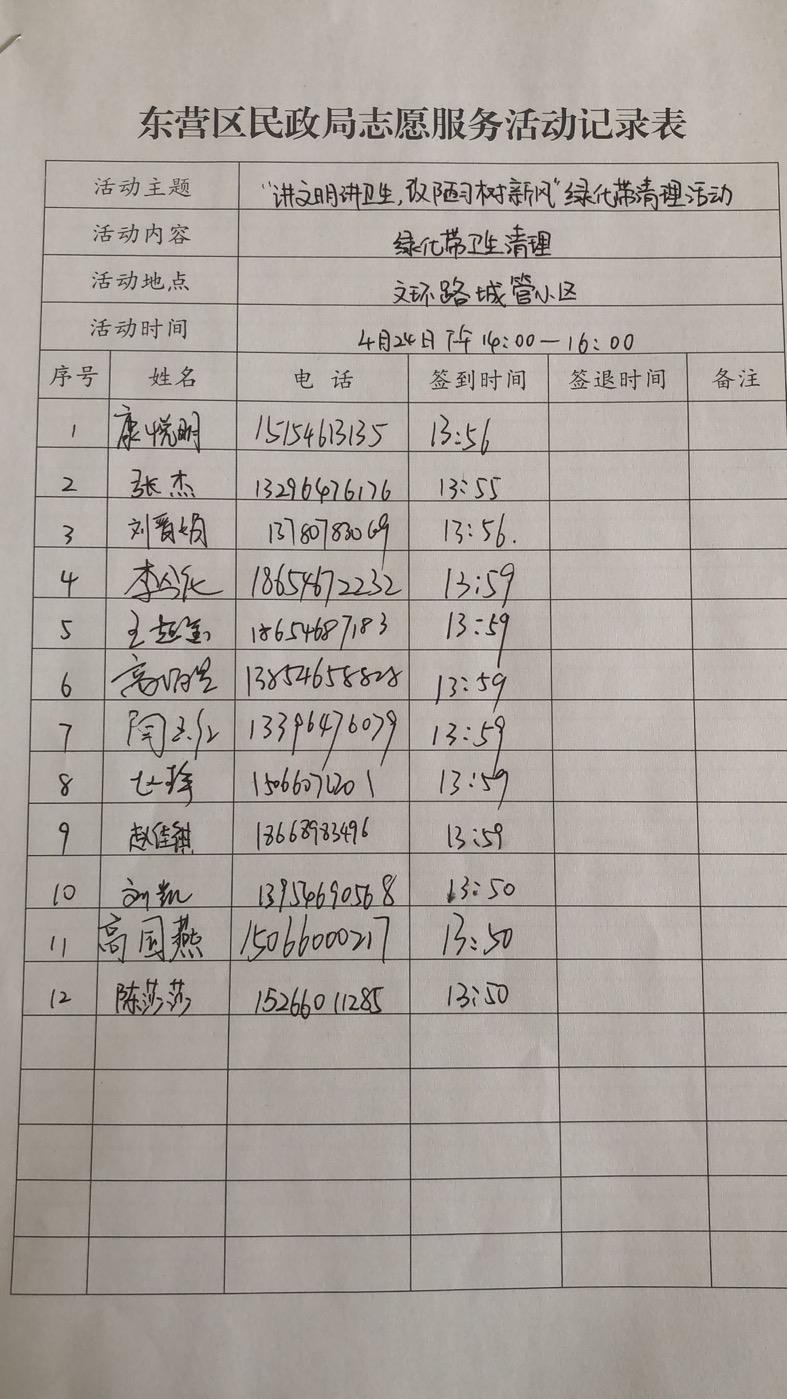 东营区民政局志愿服务活动记录表
活动主题 “讲文明讲卫生,改陋习树新风”绿化带清理活动
活动内容 绿化带卫生清理
活动地点 文环路城管小区
活动时间 4月24日下午14:00—16:00
序号 姓名 电话 签到时间 签退时间 备注
1 康悦明 15154613135 13:56
2 张杰 13296476176 13:55
3 刘晋娟 13780783069 13:56.
4 18654672232 13:59
5 18654687183 13:59
6 13854658828 13:59
7 13396476079 13:59
8 13:59
9 赵佳祺 18668983496 13:59
10 刘凯 13954690568 13:50
11 高国燕 15066000217 13:50
12 陈莎莎 15266011285 13:50